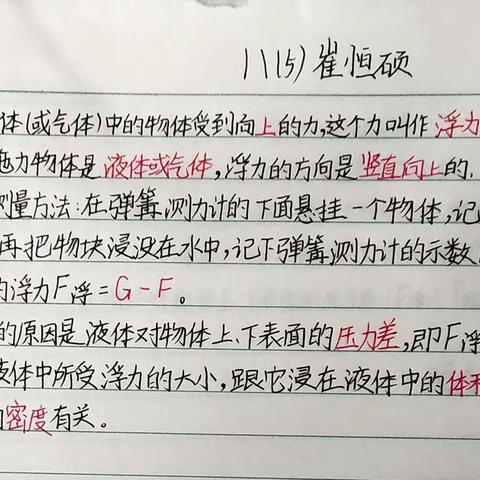 11(15)崔恒硕
体(或气体)中的物体受到向上的力,这个力叫作浮力
施力物体是液体或气体,浮力的方向是竖直向上的.
测量方法:在弹簧测力计的下面悬挂一个物体,记
再把物块浸没在水中,记下弹簧测力计的示数
的浮力F浮=G-F。
的原因是液体对物体上、下表面的压力差,即F浮
液体中所受浮力的大小,跟它浸在液体中的体积
的密度有关。